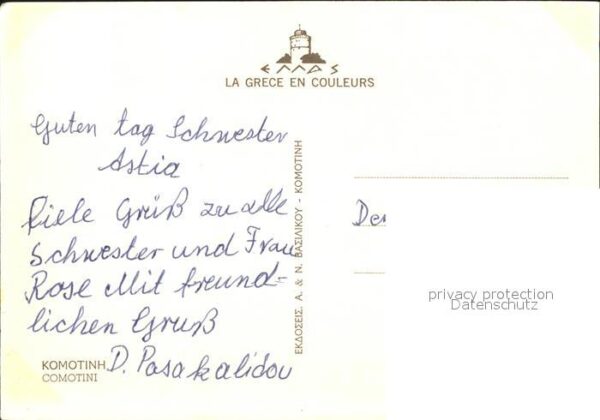 ΕΛΛΑΣ
LA GRECE EN COULEURS
Guten tag Schwester
Astia
fiele Grüß zu alle
Schwester und Frau
Rose Mit freund-
lichen Gruß
D. Pasakalidou
ΚΟΜΟΤΙΝΗ
COMOTINI
ΕΚΔΟΣΕΙΣ, Α. & Ν. ΒΑΣΙΛΙΚΟΥ - ΚΟΜΟΤΙΝΗ
privacy protection
Datenschutz